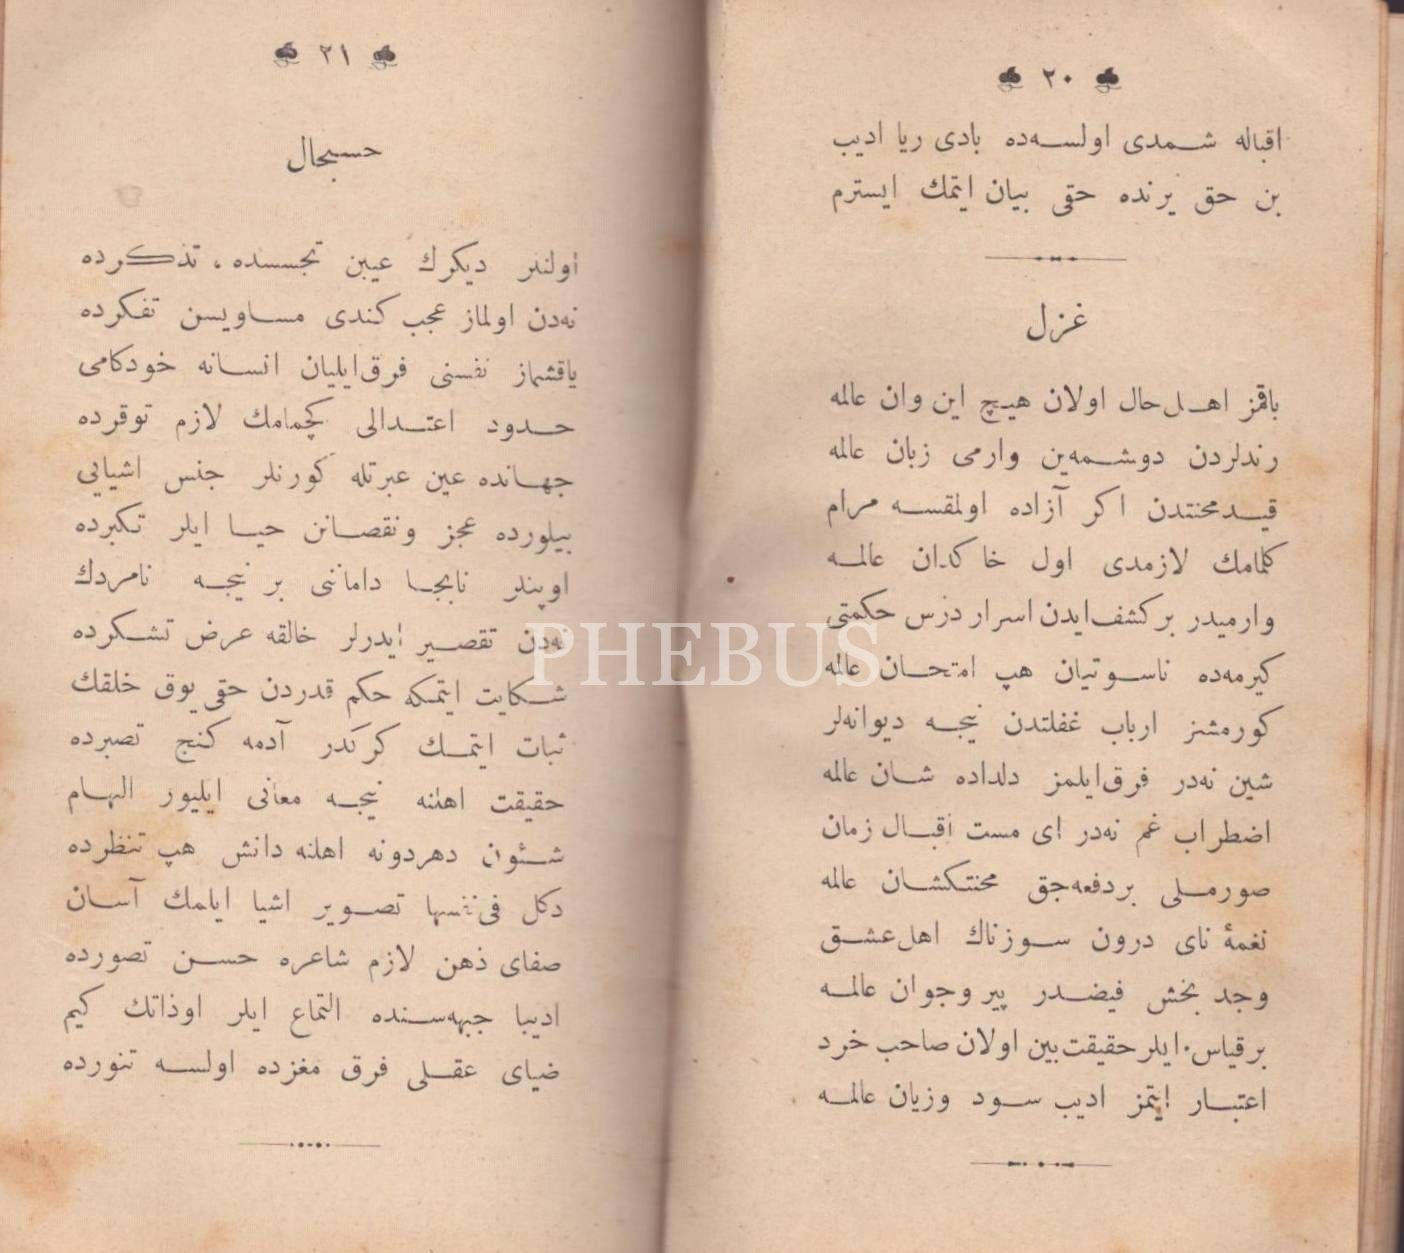 ٢٠
اقباله شمدی اولسه‌ده بادی ریا ادیب
بن حق یرنده حقی بیان ایتمك ایسترم
غزل
باقمز اهل حال اولان هیچ این وان عالمه
رندلردن دوشمه‌ین وارمی زبان عالمه
قید محنتدن اكر آزاده اولمقسه مرام
كلمامك لازمدی اول خاكدان عالمه
وارمیدر بر كشف ایدن اسرار درس حكمتی
كیرمه‌ده ناسوتیان هپ امتحان عالمه
كورمشز ارباب غفلتدن نیجه دیوانه‌لر
شین نه‌در فرق ایلمز دلداده شان عالمه
اضطراب غم نه‌در ای مست اقبال زمان
صورملی بردفعه‌جق محنتكشان عالمه
نغمهٔ نای درون سوزناك اهل عشق
وجد بخش فیضدر پیر وجوان عالمه
بر قیاس ایلر حقیقت بین اولان صاحب خرد
اعتبار ایتمز ادیب سود وزیان عالمه
٢١
حسبحال
اولنلر دیكرك عیبن تجسسده ، تذكرده
نه‌دن اولماز عجب كندی مساویسن تفكرده
یاقشماز نفسنی فرق ایلیان انسانه خودكامی
حدود اعتدالی كچمامك لازم توقرده
جهانده عین عبرتله كورنلر جنس اشیایی
بیلورده عجز ونقصانن حیا ایلر تكبرده
اوپنلر نابجا داماننی بر نیجه نامردك
نه‌دن تقصیر ایدرلر خالقه عرض تشكرده
شكایت ایتمكه حكم قدردن حقی یوق خلقك
ثبات ایتمك كركدر آدمه كنج تصبرده
حقیقت اهلنه نیجه معانی ایلیور الهام
شئون دهردونه اهلنه دانش هپ تنظرده
دكل فی‌نفسها تصویر اشیا ایلمك آسان
صفای ذهن لازم شاعره حسن تصورده
ادیبا جبهه‌سنده التماع ایلر اوذاتك كیم
ضیای عقلی فرق مغزده اولسه تنورده
PHEBUS